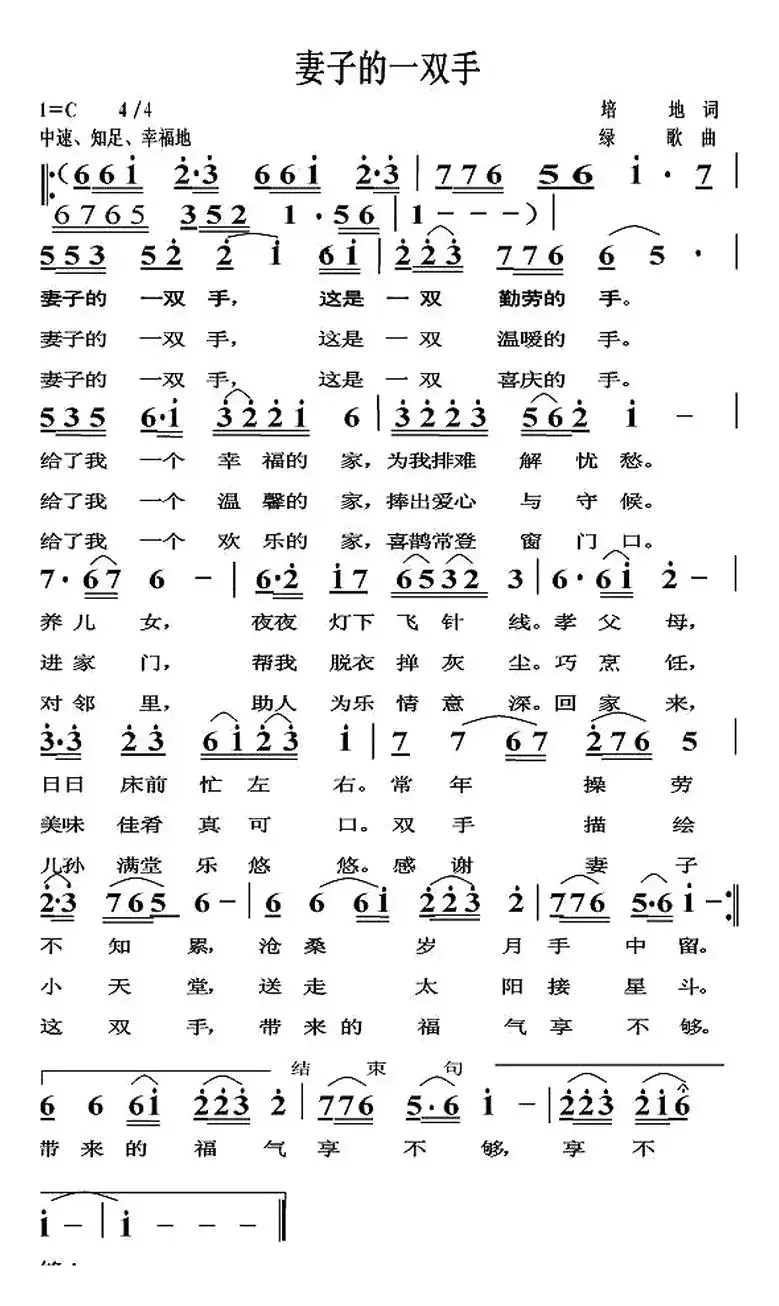 妻子的一双手
1=C 4/4 培 地 词
中速、知足、幸福地 绿 歌 曲
(661 2·3 661 2·3 | 776 56 1· 7 |
6765 352 1·56 | 1 - - - ) |
553 52 2 1 61 | 223 776 6 5· |
妻子的 一双 手, 这是 一 双 勤劳的 手。
妻子的 一双 手, 这是 一 双 温暖的 手。
妻子的 一双 手, 这是 一 双 喜庆的 手。
535 6·1 3221 6 | 3223 562 1 - |
给了我 一个 幸 福的 家,为我排难 解 忧 愁。
给了我 一个 温 馨的 家,捧出爱心 与 守 候。
给了我 一个 欢 乐的 家,喜鹊常登 窗 门 口。
7· 67 6 - | 6·2 17 6532 3 | 6· 61 2 - |
养 儿 女, 夜夜 灯下 飞 针 线。孝 父 母,
进 家 门, 帮我 脱衣 掸 灰 尘。巧 烹 饪,
对 邻 里, 助人 为乐 情 意 深。回 家 来,
3·3 23 6123 1 | 7 7 67 276 5 |
日日 床前 忙 左 右。常 年 操 劳
美味 佳肴 真 可 口。双 手 描 绘
儿孙 满堂 乐 悠 悠。感 谢 妻 子
2·3 765 6 - | 6 6 61 223 2 | 776 5·6 1 - :||
不 知 累, 沧 桑 岁 月 手 中 留。
小 天 堂, 送 走 太 阳 接 星 斗。
这 双 手, 带 来 的 福 气 享 不 够。
结 束 句
6 6 61 223 2 | 776 5·6 1 - | 223 216
带 来 的 福 气 享 不 够, 享 不
1 - | 1 - - - ||